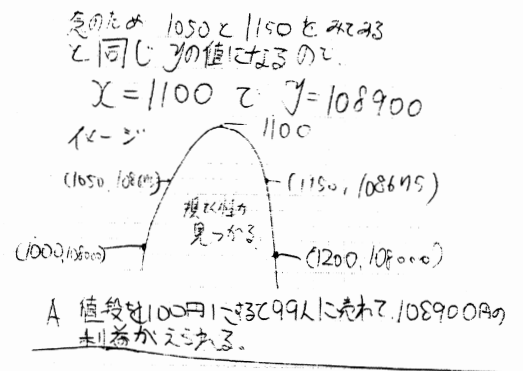 念のため 1050と1150をみてみる
と同じyの値になるので
x=1100で y=108900
イメージ
1100
(1050, 108675)
(1150, 108675)
見つかる
(1000, 108000)
(1200, 108000)
A 値段を1100円にすると99人に売れて、108900円の
利益がえられる。